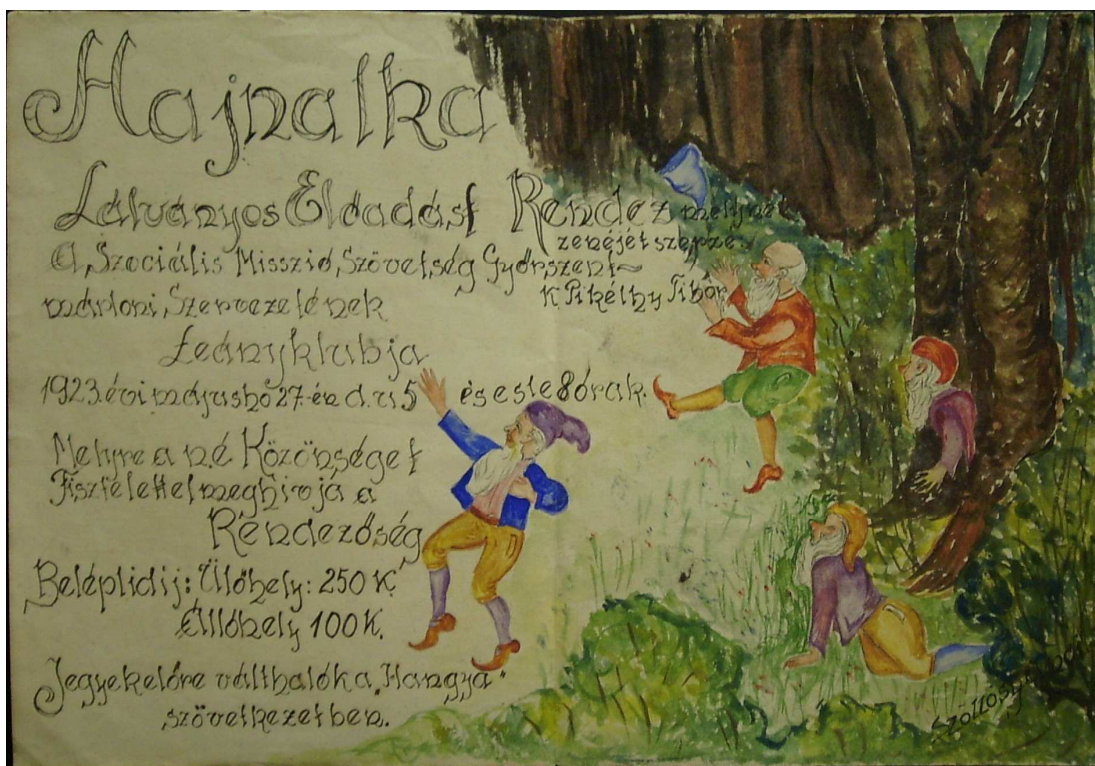 Hajnalka
Látványos Előadást Rendez melynek
zenéjét szerzé:
A „Szociális Misszió„ Szövetség Győrszent~
K. Pikéthy Tibor
mártoni„ Szervezetének
Leányklubja
1923. évi május hó 27-én d. u 5 és este 8 órak.
Melyre a né Közönséget
Tisztelettel meghívja a
Rendezőség
Beléptidíj: Ülőhely: 250 K
Állóhely 100 K.
Jegyek előre válthatók a „Hangya"
szövetkezetben.